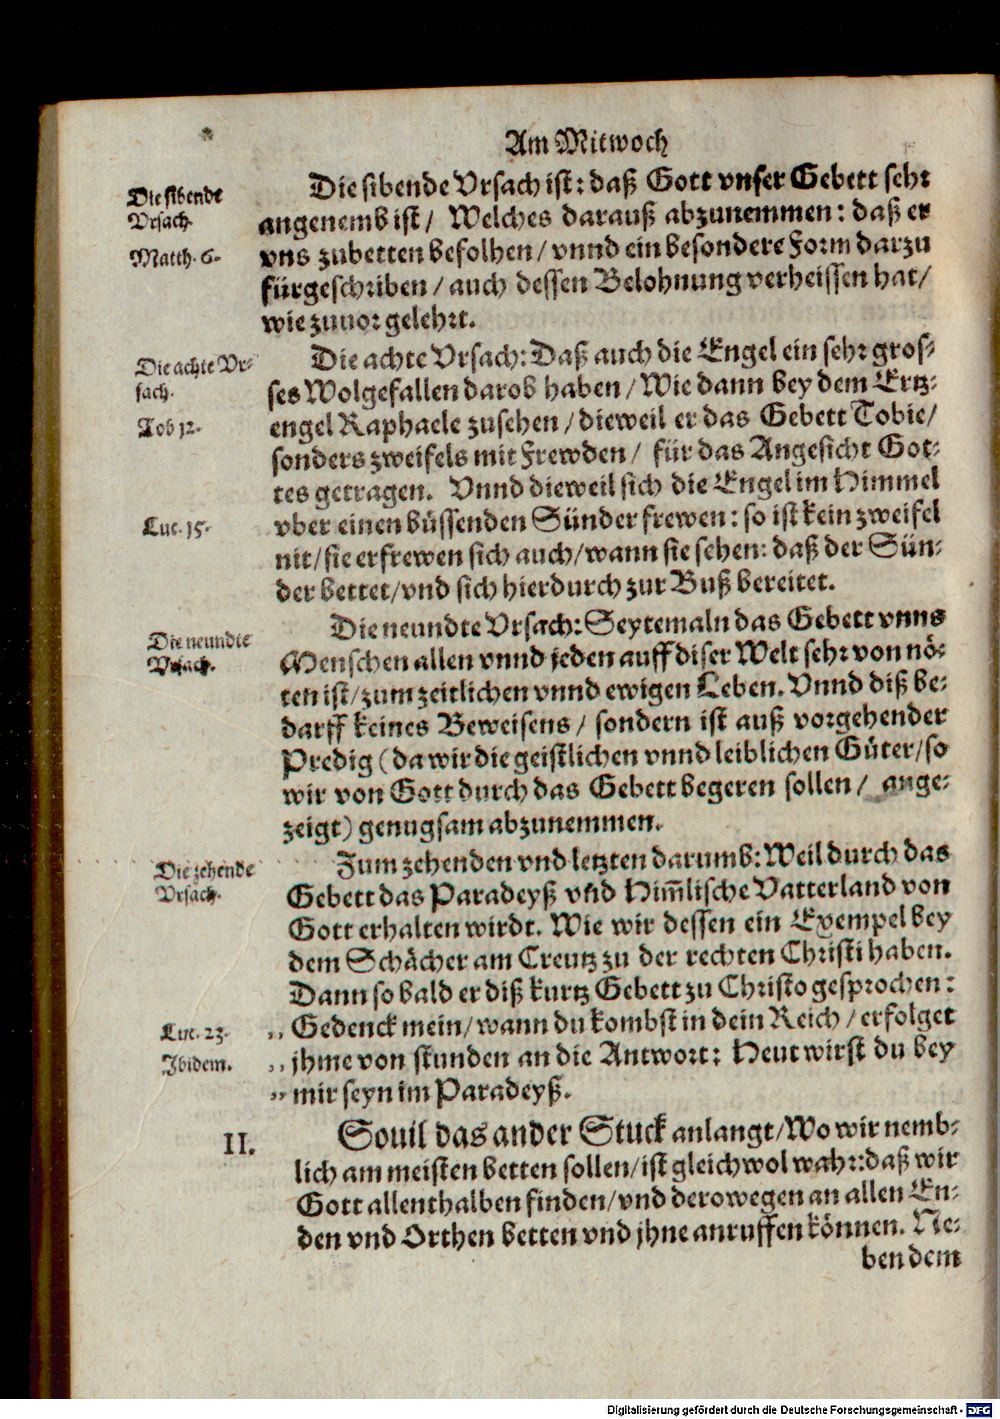 Am Mitwoch
Die sibende
Vrsach.
Matth. 6.
Die sibende Vrsach ist: daß Gott vnser Gebett sehr
angenemb ist / Welches darauß abzunemmen: daß er
vns zubetten befolhen / vnnd ein besondere Form darzu
fürgeschriben / auch dessen Belohnung verheissen hat /
wie zuuor gelehrt.
Die achte Vr-
sach.
Tob 12.
Luc. 15.
Die achte Vrsach: Daß auch die Engel ein sehr gros-
ses Wolgefallen darob haben / Wie dann bey dem Ertz-
engel Raphaele zusehen / dieweil er das Gebett Tobie /
sonders zweifels mit Frewden / für das Angesicht Got-
tes getragen. Vnnd dieweil sich die Engel im Himmel
vber einen büssenden Sünder frewen: so ist kein zweifel
nit / sie erfrewen sich auch / wann sie sehen: daß der Sün-
der bettet / vnd sich hierdurch zur Buß bereitet.
Die neundte
Vrsach.
Die neundte Vrsach: Seytemaln das Gebett vnns
Menschen allen vnnd jeden auff diser Welt sehr von nö-
ten ist / zum zeitlichen vnnd ewigen Leben. Vnnd diß be-
darff keines Beweisens / sondern ist auß vorgehender
Predig (da wir die geistlichen vnnd leiblichen Güter / so
wir von Gott durch das Gebett begeren sollen / ange-
zeigt) genugsam abzunemmen.
Die zehende
Vrsach.
Luc. 23.
Ibidem.
Zum zehenden vnd letzten darumb: Weil durch das
Gebett das Paradeyß vnd Him̃lische Vatterland von
Gott erhalten wirdt. Wie wir dessen ein Exempel bey
dem Schächer am Creutz zu der rechten Christi haben.
Dann so bald er diß kurtz Gebett zu Christo gesprochen:
„ Gedenck mein / wann du kombst in dein Reich / erfolget
„ jhme von stunden an die Antwort: Heut wirst du bey
„ mir seyn im Paradeyß.
II.
Souil das ander Stuck anlangt / Wo wir nemb-
lich am meisten betten sollen / ist gleichwol wahr: daß wir
Gott allenthalben finden / vnd derowegen an allen En-
den vnd Orthen betten vnd jhne anruffen können. Ne-
ben dem
Digitalisierung gefördert durch die Deutsche Forschungsgemeinschaft - DFG